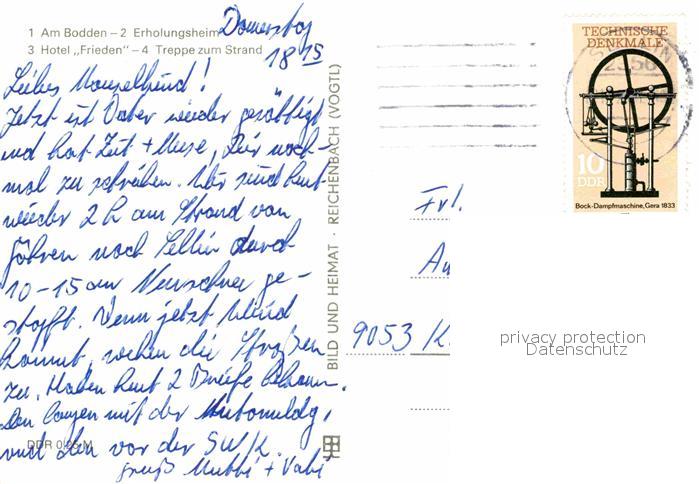 1 Am Bodden – 2 Erholungsheim
3 Hotel „Frieden" – 4 Treppe zum Strand
Donnerstag
18 15
Liebes Mauselkind!
Jetzt ist Vater wieder gesättigt
und hat Zeit + Muse, Dir noch-
mal zu schreiben. Wir sind heut
wieder 2 h am Strand von
Göhren nach Sellin durch
10-15 cm Neuschnee ge-
stapft. Wenn jetzt Wind
kommt, wehen die Straßen
zu. Haben heut 2 Briefe bekom-
den langen mit der
und den von der SW/K.
Gruß Mutti + Vati
DDR 0,25 M
BILD UND HEIMAT · REICHENBACH (VOGTL)
TECHNISCHE
DENKMALE
10
DDR
Bock-Dampfmaschine, Gera 1833
Frl.
Au
9053 K.
privacy protection
Datenschutz